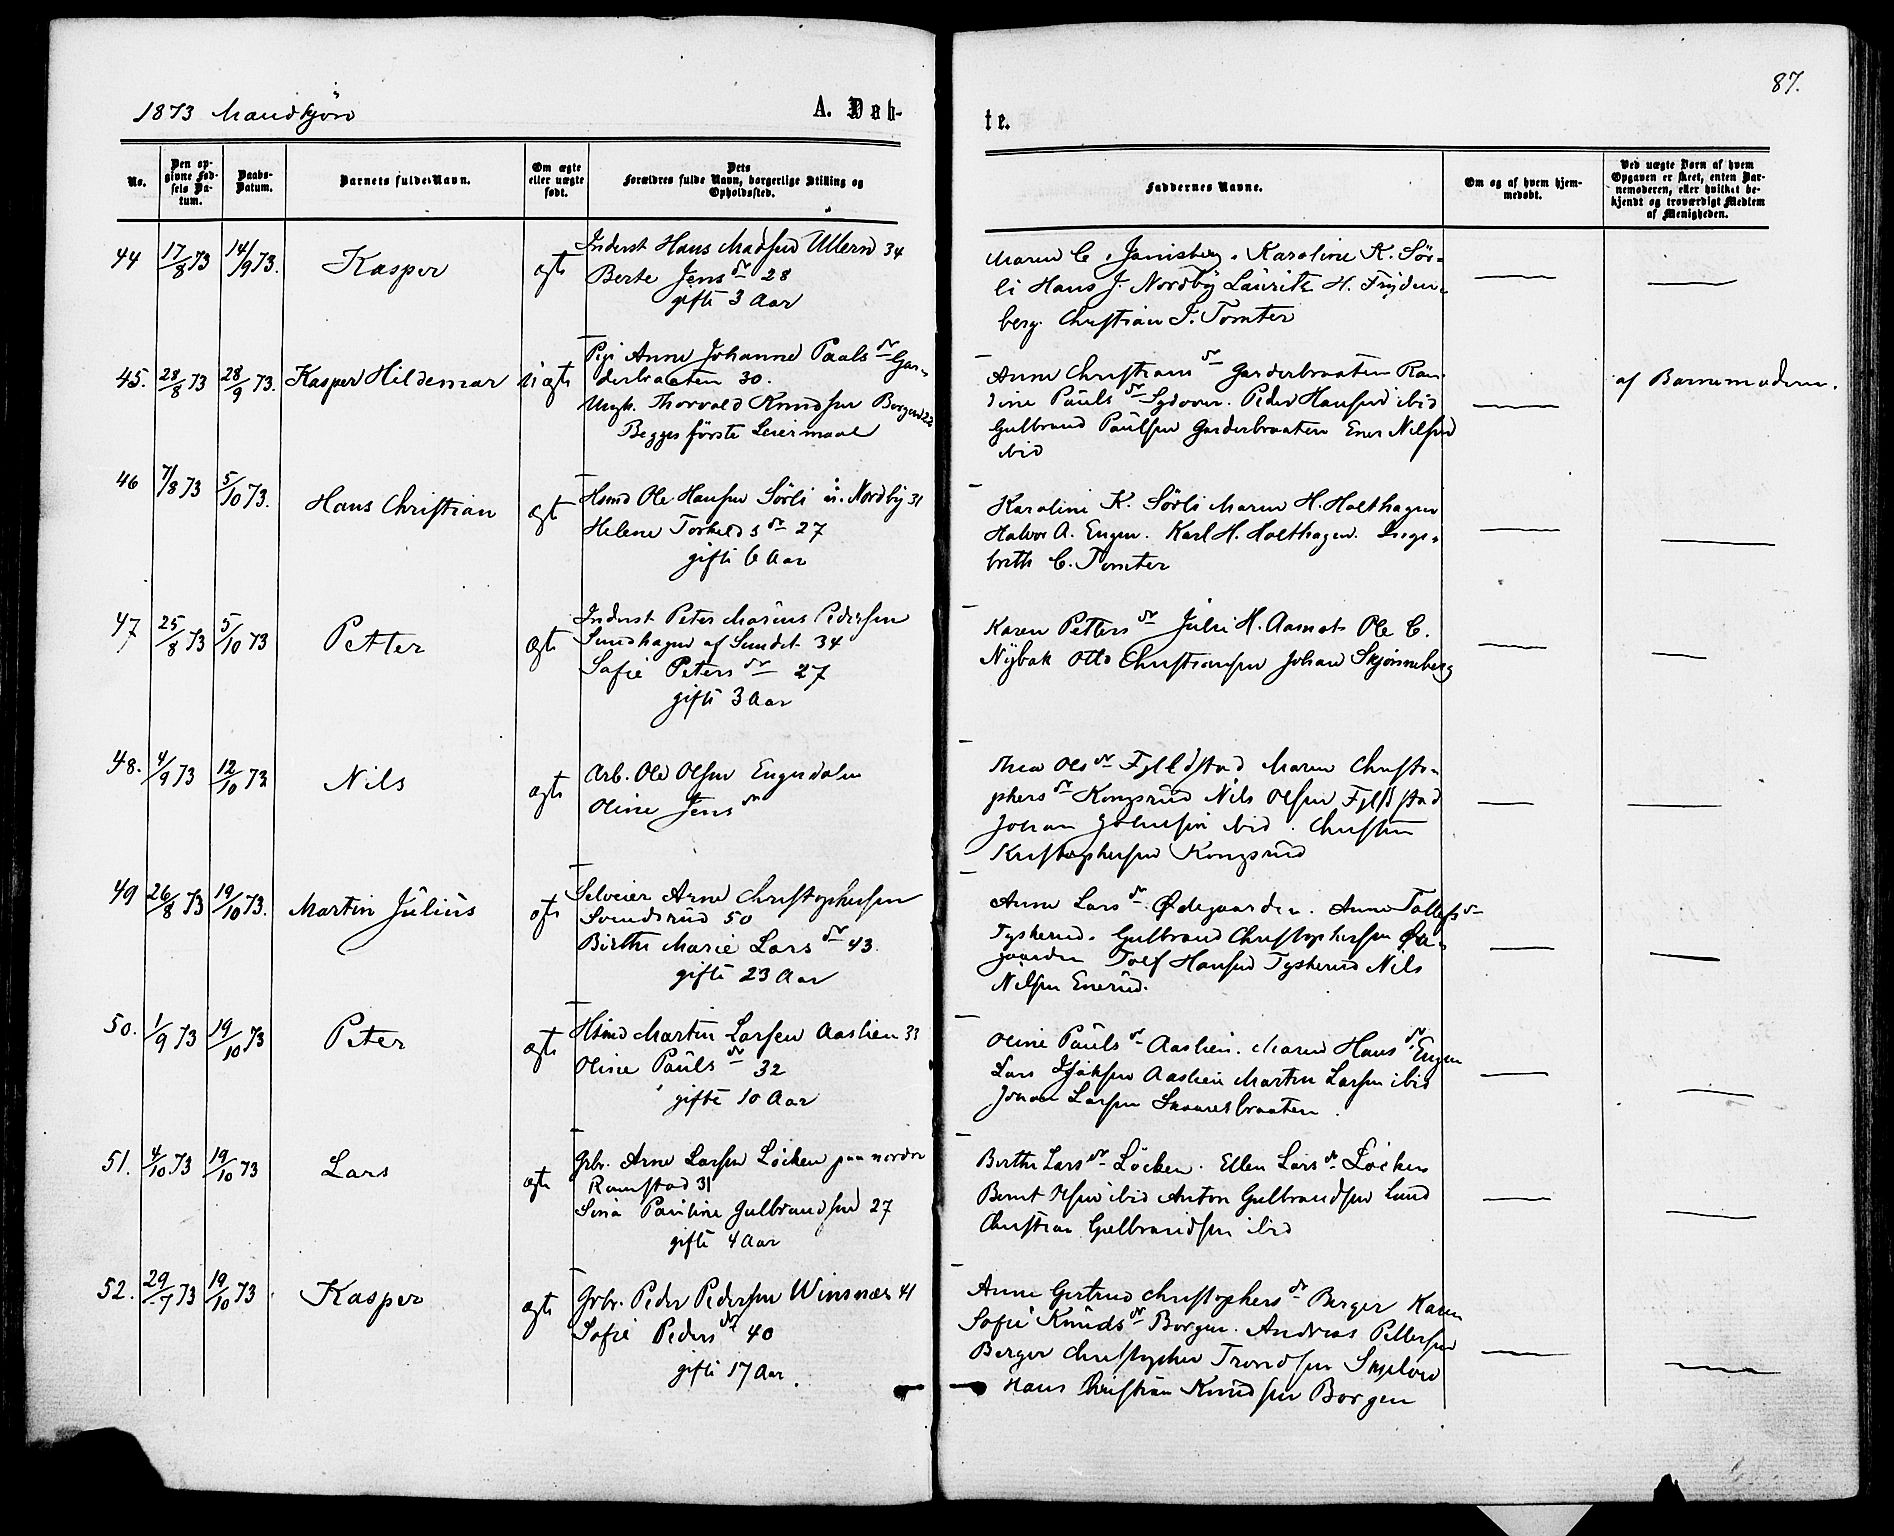 87.
1873 Mandkjøn
A. Døb-
te.
No.
Den op-
givne Fød-
sels Da-
tum.
Daabs-
Datum.
Barnets fulde Navn.
Om ægte
eller uægte
født.
Dets
Forældres fulde Navn, borgerlige Stilling og
Opholdssted.
Faddernes Navne.
Om og af hvem hjem-
medøbt.
Ved uægte Børn af hvem
Opgaven er skeet, enten Bar-
nemoderen, eller hvilket be-
kjendt og troværdigt Medlem
af Menigheden.
44 17/8 73 14/9 73. Kasper ægte
Inderst Hans Madsen Ullern 34
Berte Jensdr 28
gifte 3 Aar
Maren C. Karoline K. Sør-
li Hans J. Nordby Lauritz H. Fryden-
berg. Christian J. Tomter
45. 28/8 73 28/9 73. Kasper Hildemar uægte
Pige Anne Johanne Paalsdr Gar-
derbraaten 30.
Ungk. Thorvald Knudsen Borgen 22
Begges første Leiermaal
Anne Christiansdr Garderbraaten Ran-
dine Paulsdr Peder Hansen ibid
Gulbrand Paulsen Garderbraaten Ener Nilsen
ibid
af Barnemoderen.
46 7/8 73 5/10 73. Hans Christian ægte
Hsmd Ole Hansen Sørli u. Nordby 31
Helene Torkelsdr 27
gifte 6 Aar
Karoline K. Sørli Maren H. Holthagen
Halvor A. Engen. Karl H. Holthagen. Inge-
breth C. Tomter
47 25/8 73 5/10 73 Petter ægte
Inderst Peter Marius Pedersen
Sundhagen af Sundet 34
Sofie Petersdr 27
gifte 3 Aar
Karen Pettersdr Julie H. Aamot Ole C.
Nybak Otto Christiansen Johan Skjønneberg
48. 4/9 73 12/10 73 Nils ægte
Arb. Ole Olsen Engerdalen
Oline Jensdr
Thea Olsdr Fjeldstad Maren Christo-
phersdr Kongsrud Nils Olsen Fjeldstad
Johan Johnsen ibid. Christen
Kristophersen Kongsrud
49 26/8 73 19/10 73. Martin Julius ægte
Selveier Arne Christophersen
Svendsrud 50
Birthe Marie Larsdr 43.
gifte 23 Aar
Anne Larsdr Ødegaarden. Anne Tollefsdr
Tyskerud. Gulbrand Christophersen Øde-
gaarden Tolf Hansen Tyskerud Nils
Nilsen Enerud.
50. 1/9 73 19/10 73 Peter ægte
Hsmd Martin Larsen Aaslien 33
Oline Paulsdr 32
gifte 10 Aar
Oline Paulsdr Aaslien. Maren Hansdr Engen
Lars Isaksen Aaslien Martin Larsen ibid
Johan Larsen
51. 4/10 73 19/10 73 Lars ægte
Gbr. Arne Larsen Løcken paa nordre
Ramstad 31
Sina Pauline Gulbrandsen 27
gifte 4 Aar
Berthe Larsdr Løcken. Ellen Larsdr Løcken
Bernt Olsen ibid Anton Gulbrandsen Lund
Christian Gulbrandsen ibid
52. 29/7 73 19/10 73 Kasper ægte
Grbr. Peder Pedersen Winsnæs 41
Sofie Pedersdr 40
gifte 17 Aar.
Anne Gertrud Christophersdr Berger Karen
Sofie Knudsdr Borgen. Andreas Pettersen
Berger Christopher Trondsen
Hans Christian Knudsen Borgen